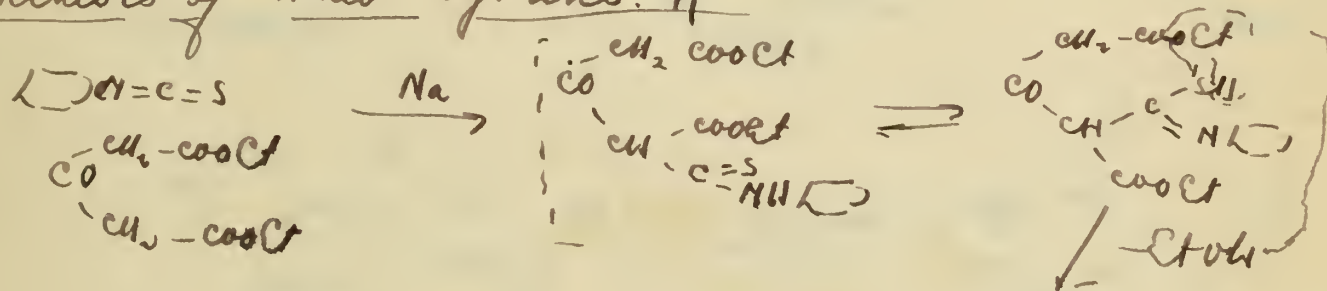 of
N=C=S
CO
CH2-COOEt
CH2-COOEt
Na
CO
CH2 COOEt
CH
COOEt
C=S
NH
CH2-COOEt
CO
CH
C
SH
N
COOEt
-EtOH